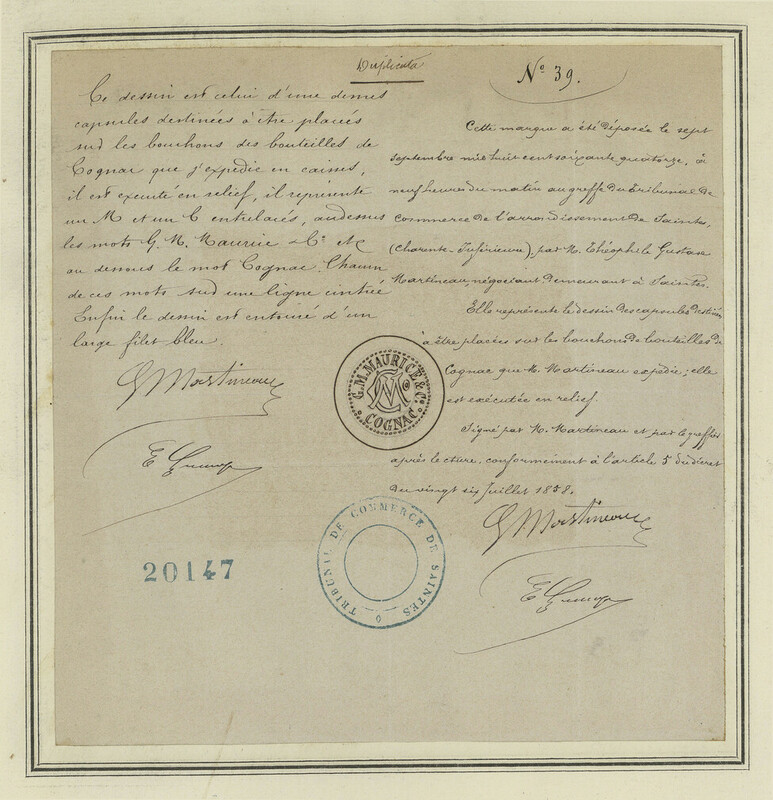 Duplicata
N° 39.
Ce dessin est celui d'une demes
capsules destinées à être placés
sud les bouchons des bouteilles de
Cognac que j'expedie en caisses,
il est executé en relief, il represente
un M et un C entrelacés, audessus
les mots G. M. Maurice & C° et
au dessous le mot Cognac. Chacun
de ces mots sud une ligne cintrée
Enfin le dessin est entouré d'un
large filet bleu.
G Martineau
Cette marque a été déposée le sept
septembre mil huit cent soixante quatorze, à
neuf heures du matin au greffe du Tribunal de
Commerce de l'arrondissement de Saintes,
(Charente-Inférieure), par M. Théophile Gustave
Martineau, négociant demeurant à Saintes.
Elle représente le dessin des capsules destinées
à être placées sur les bouchons de bouteilles de
Cognac que M. Martineau expédie; elle
est exécutée en relief.
Signé par M. Martineau et par le greffier
après lecture, conformément à l'article 5 du décret
du vingt six Juillet 1858.
G Martineau
G. M. MAURICE & C°
MC
COGNAC
TRIBUNAL DE COMMERCE DE SAINTES
20147